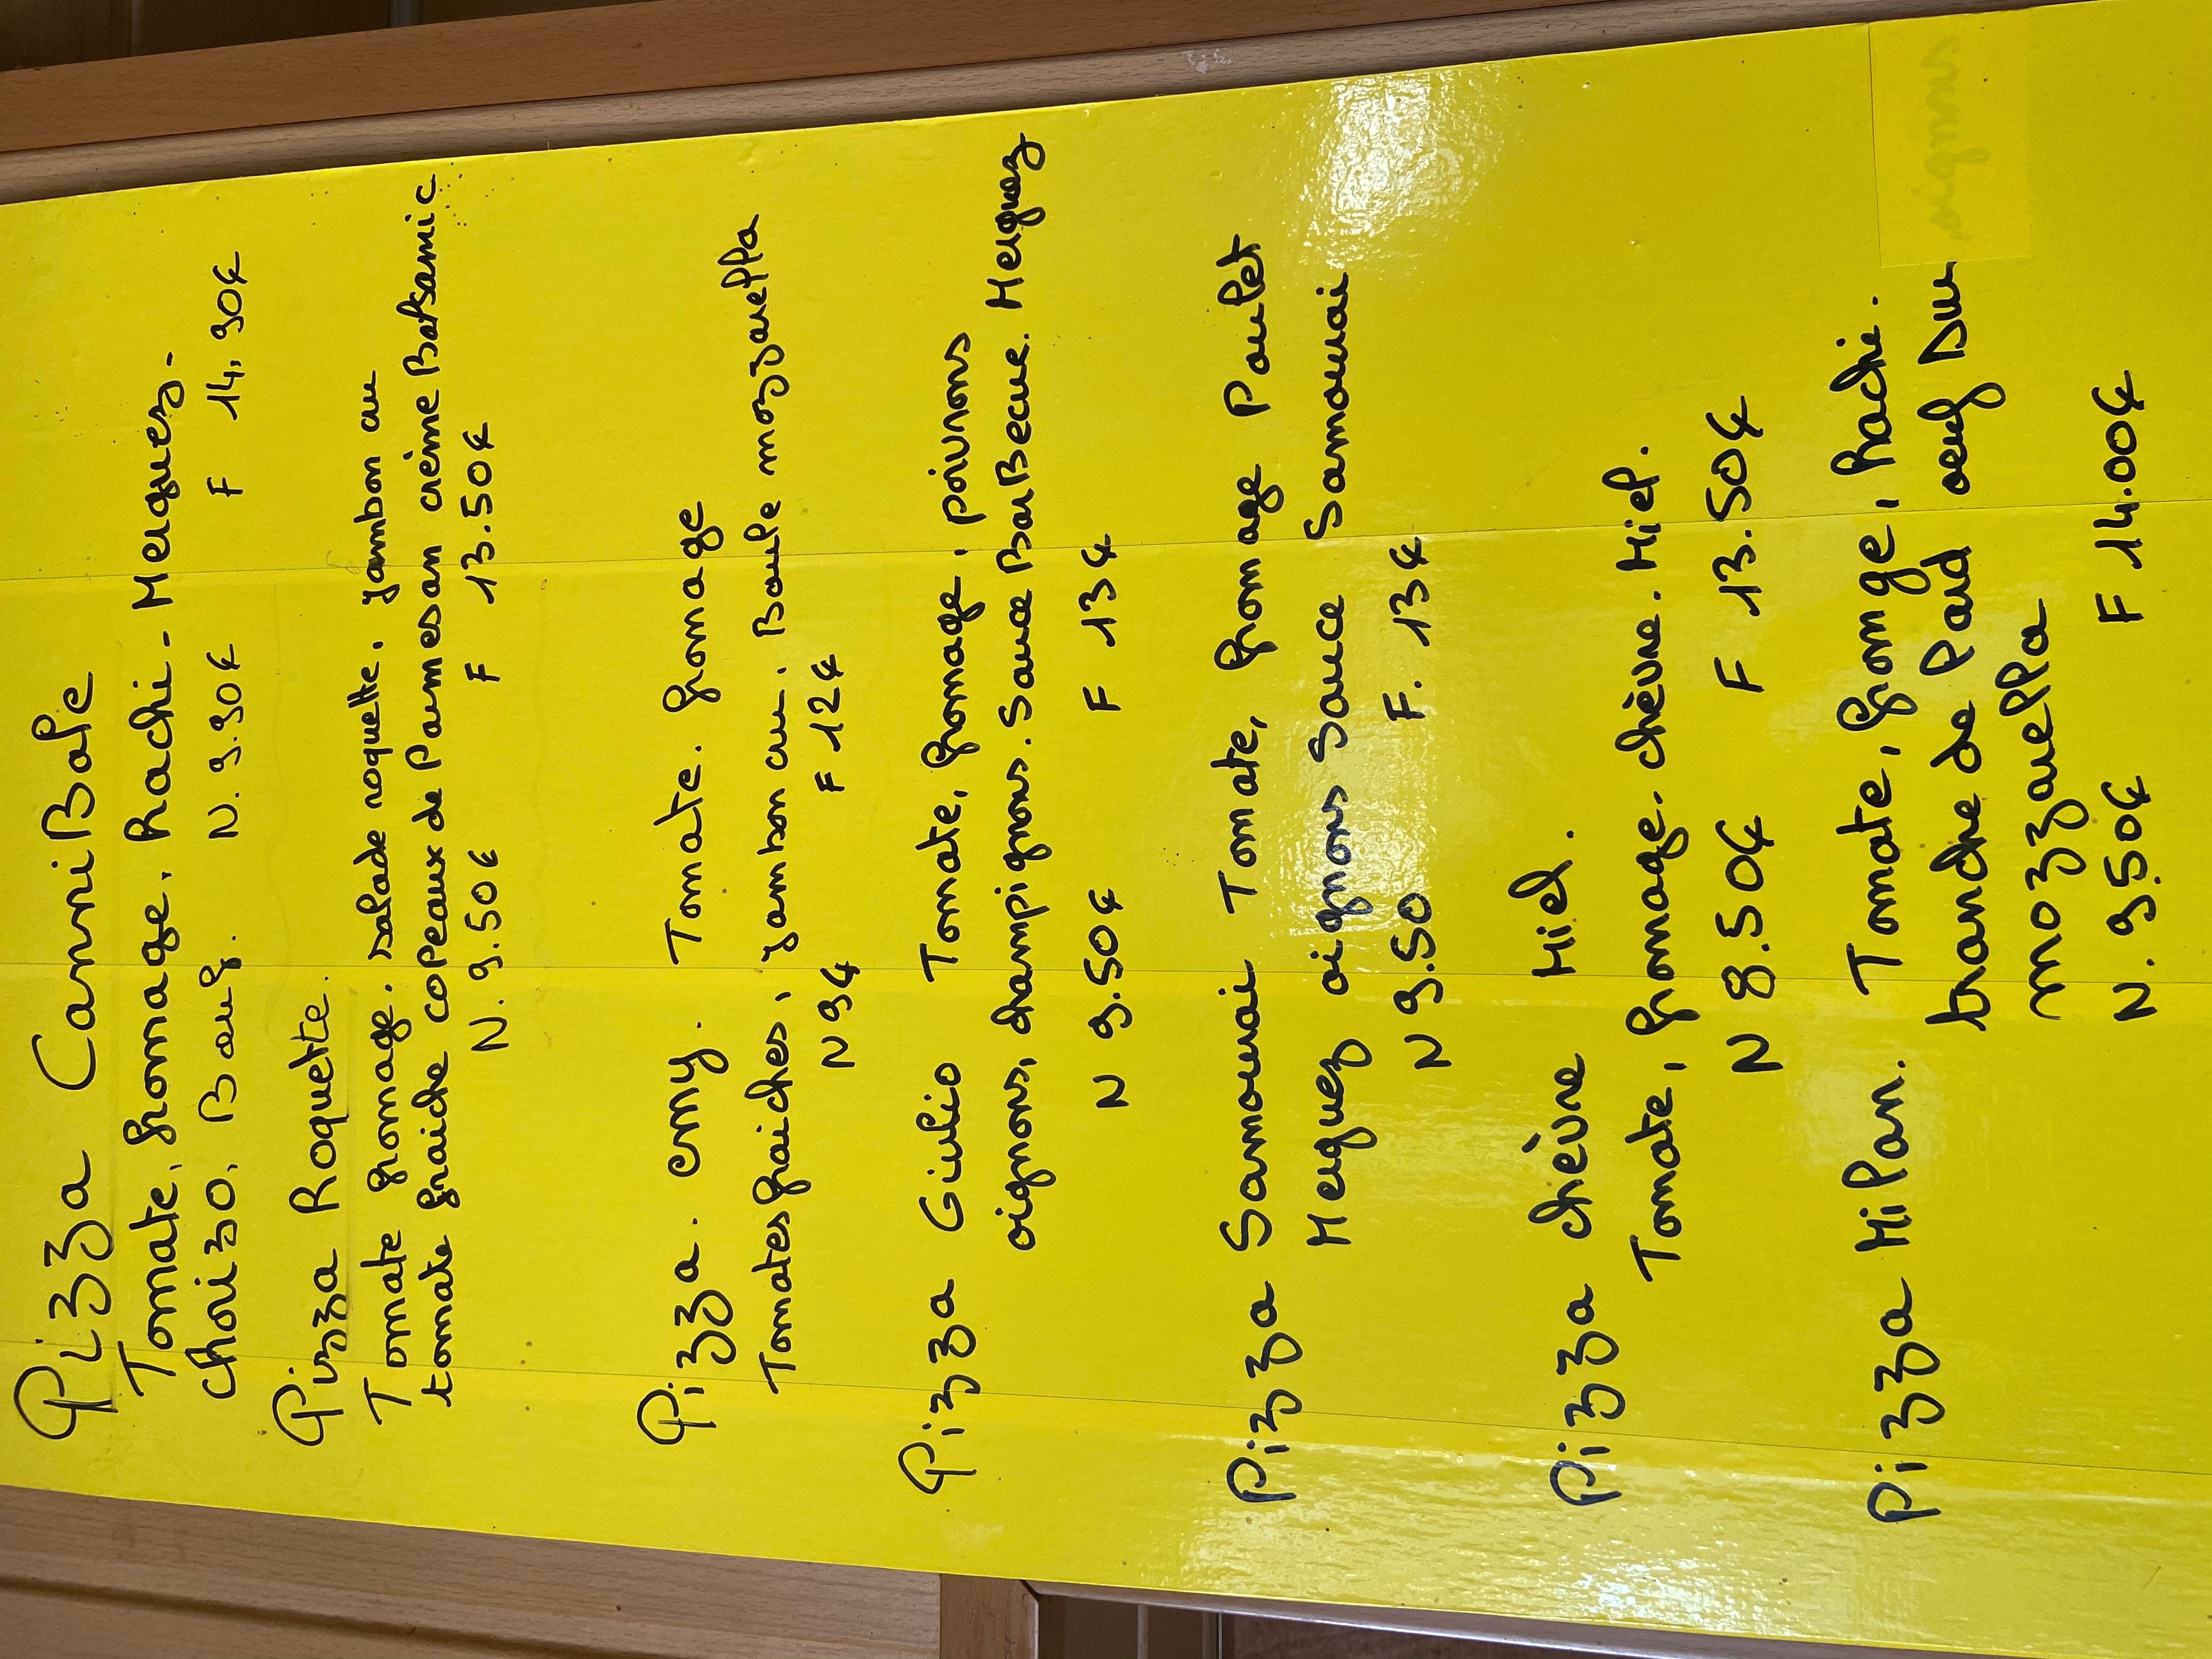 Pizza CanniBale
Tomate, fromage, hachi - Merguez -
Chorizo, Bœuf. N. 9.90€ F 14,90€
Pizza Roquette.
Tomate fromage. salade roquette, jambon cru
tomate fraiche copeaux de Parmesan crème Balsamic
N. 9.50€ F 13.50€
Pizza. emy. Tomate. fromage
Tomates fraiches, jambon cru. Boule mozzarella
N 9€ F 12€
Pizza Giulio Tomate, fromage, poivrons
oignons, champignons. Sauce BarBecue. Merguez
N 9.50€ F 13€
Pizza Samourai Tomate, fromage Poulet
Merguez oignons Sauce Samourai
N 9.50 F. 13€
Pizza chèvre Miel.
Tomate, fromage. chèvre. Miel.
N 8.50€ F 13.50€
Pizza Milan. Tomate, fromge, hachi.
tranche de Lard oeuf Dur
mozzarella
N. 9.50€ F 14.00€